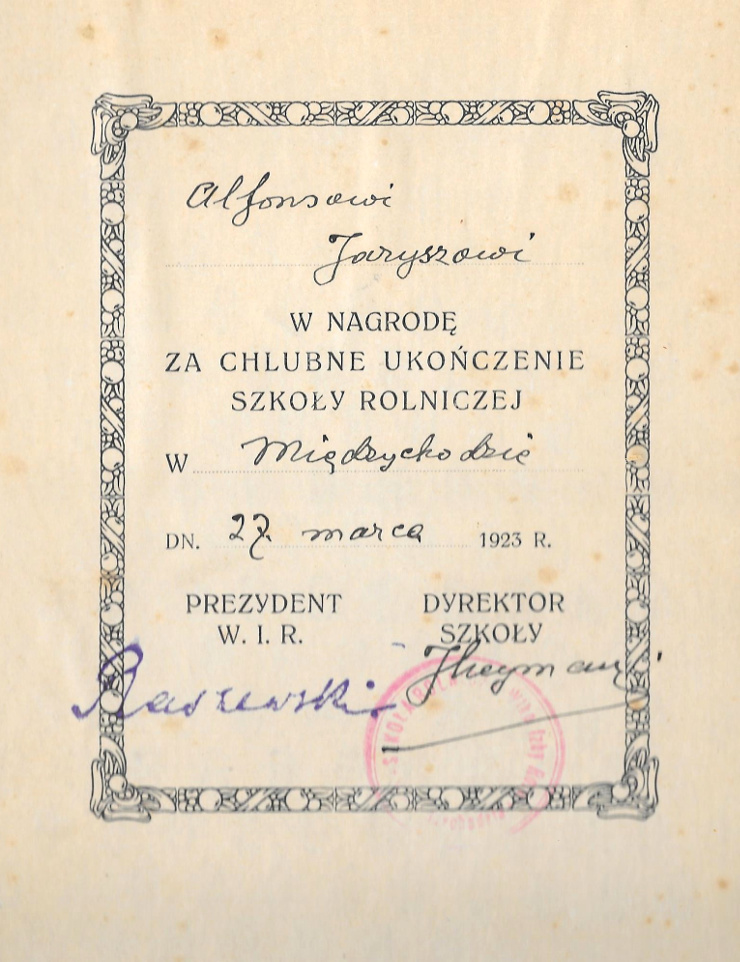 Alfonsowi
Jaryszowi
W NAGRODĘ
ZA CHLUBNE UKOŃCZENIE
SZKOŁY ROLNICZEJ
W Międzychodzie
DN. 27. marca 1923 R.
PREZYDENT DYREKTOR
W. I. R. SZKOŁY
Raszewski